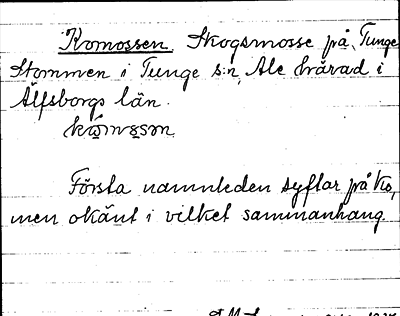 Komossen Skogsmosse på Tunge
Stommen i Tunge s:n, Ale härad i
Älfsborgs län.
Första namnleden syftar på ko,
men okänt i vilket sammanhang